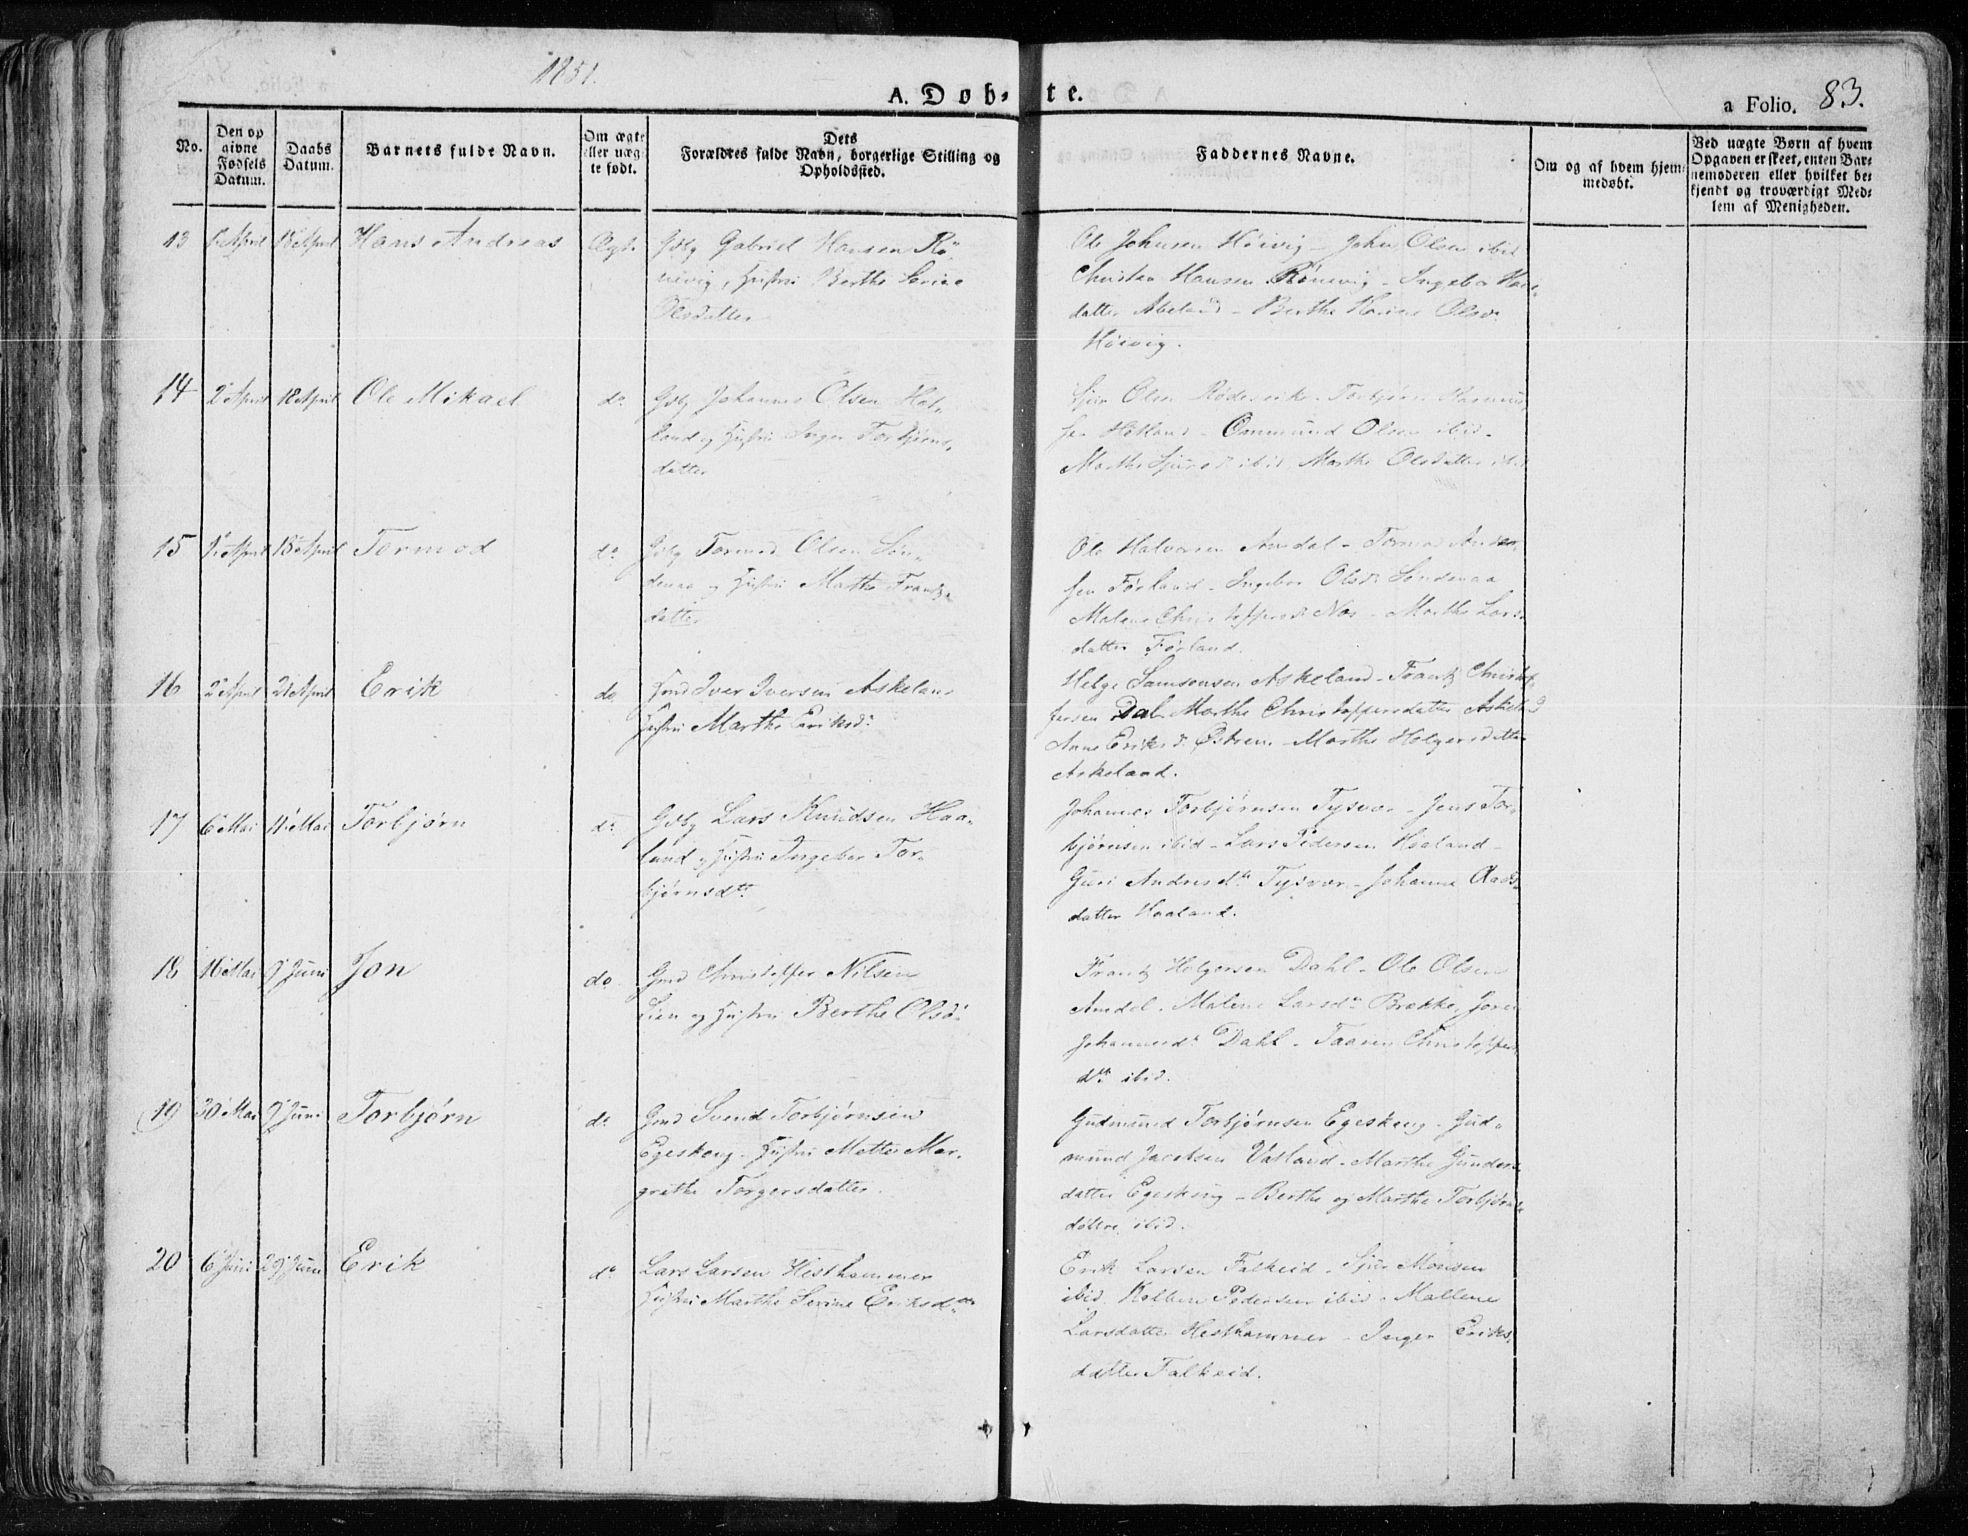 1851.
A. Døb-te.
a Folio. 83.
No.
Den op
givne
Fødsels
Datum.
Daabs
Datum.
Barnets fulde Navn.
Om ægte
eller uæg-
te født.
Dets
Forældres fulde Navn, borgerlige Stilling og
Opholdssted.
Faddernes Navne.
Om og af hvem hjem-
medøbt.
Ved uægte Børn af hvem
Opgaven er skeet, enten Bar-
nemoderen eller hvilket be-
kjendt og troværdigt Med-
lem af Menigheden.
13 April 18 April Hans Andreas Ægte Gdbr Gabriel Hansen Rø-
nevig, Hustru Berthe Serine
Olsdatter
Ole Johnsen Høivig - John Olsen ibid
Christen Hansen Rønevig - Ingebor Hans-
datter Abeland - Berthe Olsdr
Høivig.
14 2 April 18 April Ole Mikael do. Gdbr Johannes Olsen Het-
land og Hustru Inger Torbjørns-
datter
Sjur Olsen - Torbjørn Rasmus-
sen Hetland - Ommund Olsen ibid.
Marthe ibid Marthe Olsdatter ibid
15 April 18 April Tormod do. Gdbr Tormod Olsen Søn-
denaa og Hustru Marthe Frantz-
datter
Ole Halvorsen Amdal - Tormod
sen Førland - Ingebor Olsdr Søndenaa
Malene Christophersdr Nes - Marthe Lars-
datter Førland.
16 2 April 21 April Erik do Hmd Iver Iversen Askeland
Hustru Marthe Eriksdr
Helge Samsonsen Askeland - Frantz Christof-
fersen Dal - Marthe Christophersdatter Askeland
Anne Eriksdr Østren - Marthe Holgersdatter
Askeland.
17 6 Mai 11 Mai Torbjørn do Gdbr Lars Knudsen Haa-
land og Hustru Ingebor Tor-
bjørnsdtr
Johannes Torbjørnsen Tysvær - Jens Tor-
bjørnsen ibid - Lars Pedersen Haaland -
Guri Andersdtr Tysvær - Johanne
datter Haaland.
18 16 Mai 9 Juni Jon do. Gmd Christopher Nilsen
Lien og Hustru Berthe Olsdr
Frantz Holgersen Dahl - Ole Olsen
Amdal - Malene Larsdtr Brække,
Johannesdr Dahl - Taaren Christophers
dtr ibid.
19 30 Mai 9 Juni Torbjørn do Gmd Svend Torbjørnsen
Egeskoug - Hustru Mette Mar-
grethe Torgersdatter.
Gudmund Torbjørnsen Egeskoug - Gud-
mund Jacobsen Vatland - Marthe Gunders-
datter Egeskoug - Berthe og Marthe Torbjørns-
døttre ibid.
20 6 Juni 29 Juni Erik do Lars Larsen Hesthammer
Hustru Marthe Serine Eriksdtr
Erik Larsen Falkeid - Sjur Monsen
ibid. Kolben Pedersen ibid - Mallene
Larsdatter Hesthammer - Inger Eriks-
datter Falkeid.